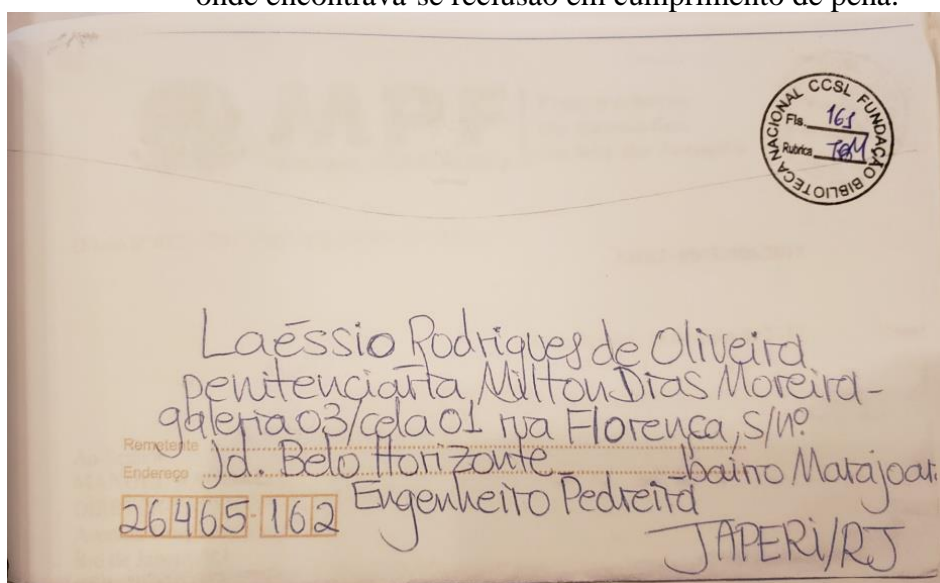 onde encontrava-se reclusão em cumprimento de pena.
BIBLIOTECA NACIONAL CCSL FUNDAÇÃO
Fls. 161
Rubrica
Laéssio Rodrigues de Oliveira
penitenciaria Milton Dias Moreira-
galeria 03/cela 01 rua Florença, s/nº
Remetente
Endereço Jd. Belo Horizonte - bairro Marajoar.
26465-162 Engenheiro Pedreira
JAPERI/RJ